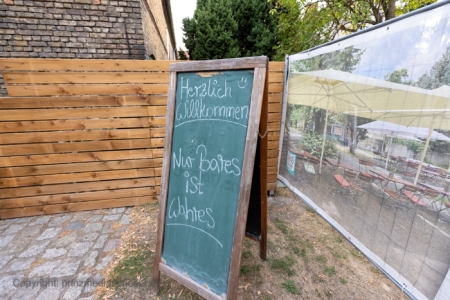 Herzlich
Willkommen
"Nur Bares
ist
Wahres
Copyright: